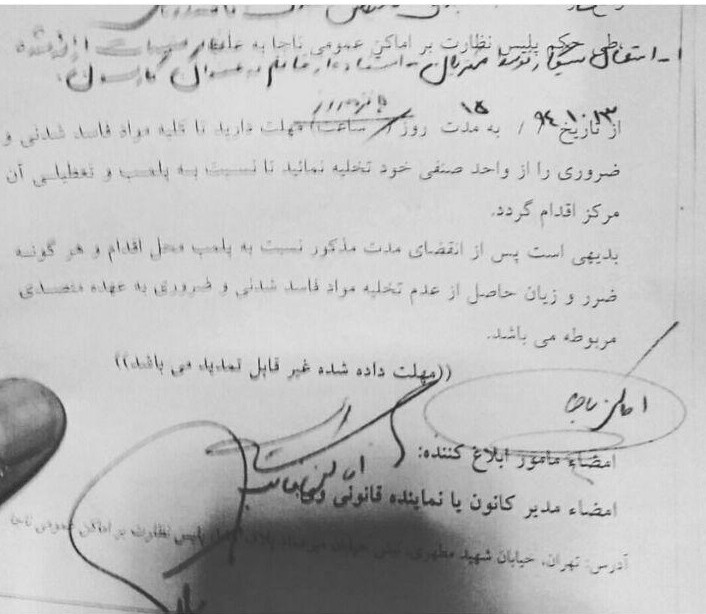 طی حکم پلیس نظارت بر اماکن عمومی ناجا به علت
۱- استعمال سیگار توسط مشتریان - استفاده از خانم به عنوان گارسون
از تاریخ ۹۴/۱۰/۱۳ به مدت ۱۵ روز / ساعت) مهلت دارید تا کلیه مواد فاسد شدنی و
پانزده روز
ضروری را از واحد صنفی خود تخلیه نمائید تا نسبت به پلمب و تعطیلی آن
مرکز اقدام گردد.
بدیهی است پس از انقضای مدت مذکور نسبت به پلمب محل اقدام و هر گونه
ضرر و زیان حاصل از عدم تخلیه مواد فاسد شدنی و ضروری به عهده متصدی
مربوطه می باشد.
((مهلت داده شده غیر قابل تمدید می باشد))
اماکن ناجا
امضاء مامور ابلاغ کننده:
امضاء مدیر کانون یا نماینده قانونی وی
آدرس: تهران، خیابان شهید مطهری، نبش خیابان پلاک پلیس نظارت بر اماکن عمومی ناجا